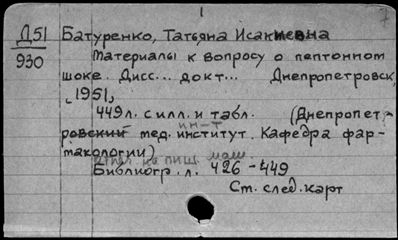 Д51
930
Батуренко, Татьяна Исакиевна
Материалы к вопросу о пептонном
шоке. Дисс... докт... Днепропетровск,
1951,
449 л. с илл. и табл. (Днепропет-
ин-т
ровский мед. институт. Кафедра фар-
макологии)
Отпеч. на пиш. маш.
Библиогр. л. 426-449
Ст. след. карт
7